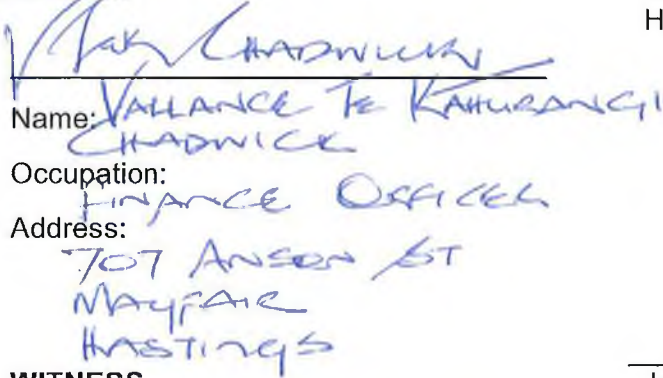 H
Chadwick
Name: VALLANCE TE KAHURANGI
CHADWICK
Occupation:
FINANCE OFFICER
Address:
707 ANSON ST
MAYFAIR
HASTINGS
WITNESS